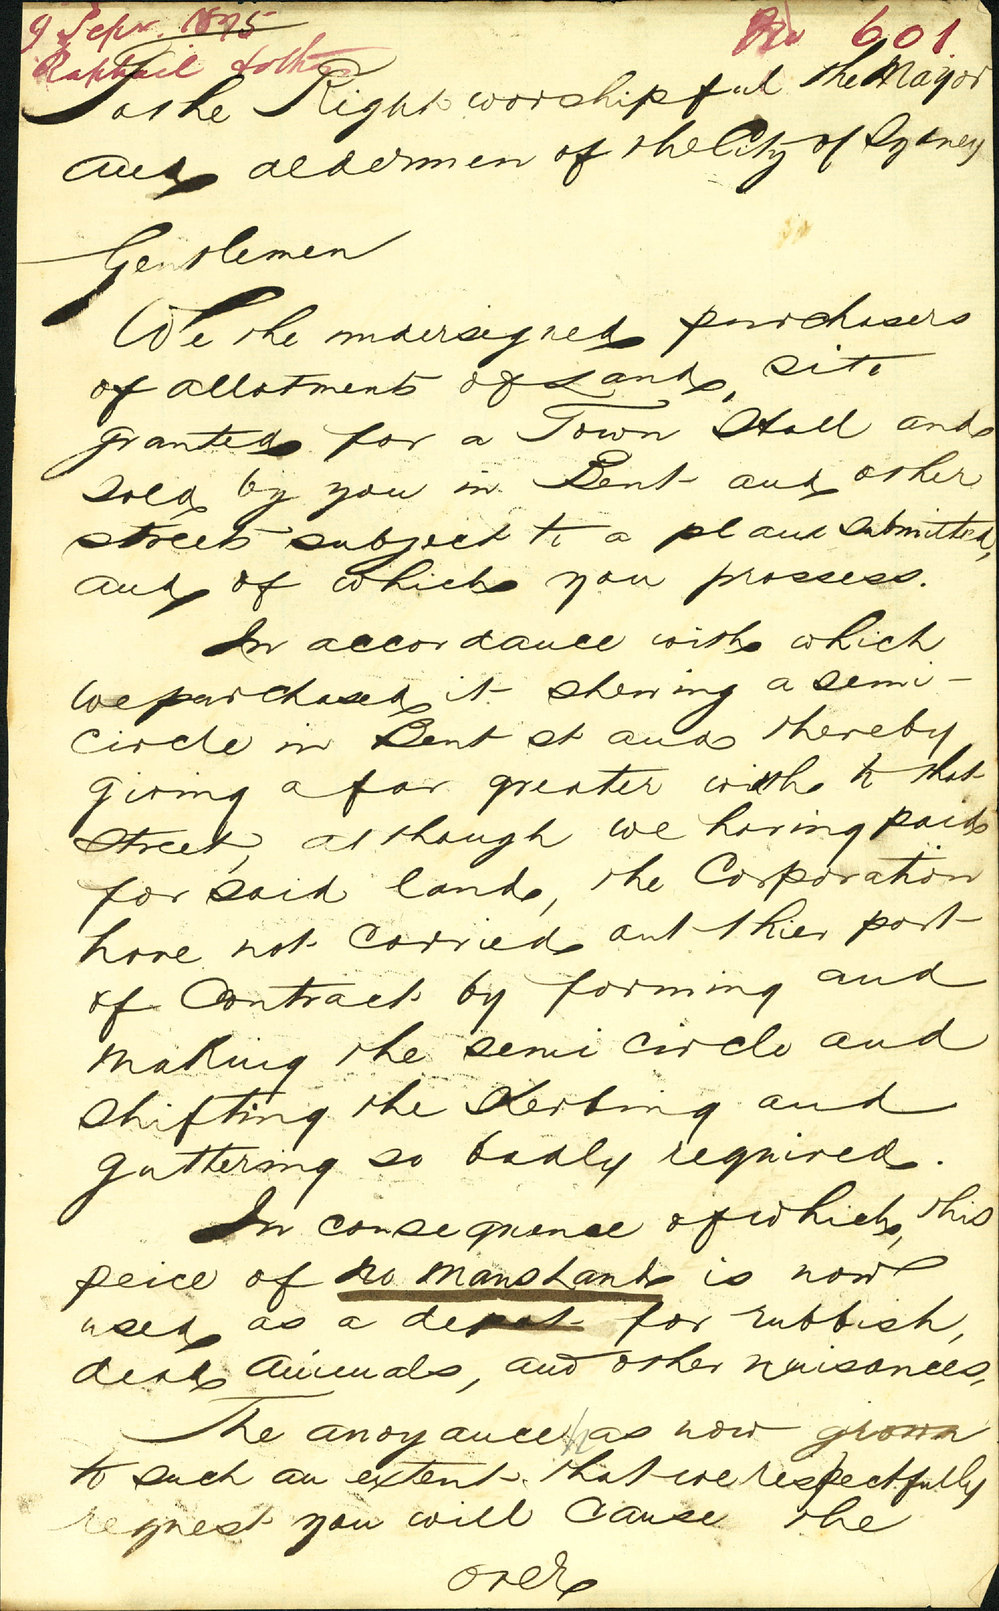 9 Sepr. 1875
No 601
Raphael & others
To the Right worshipful the Mayor
and aldermen of the City of Sydney
Gentlemen
We the undersigned purchasers
of allotments of Land, site
granted for a Town Hall and
sold by you in Bent and other
streets subject to a plan submitted,
and of which you prossess.
In accordance with which
we purchased it shewing a semi-
circle in Bent st and thereby
giving a far greater width to that
street, although we having paid
for said land, the Corporation
have not carried out thier part
of Contract by forming and
making the semi circle and
shifting the Kerbing and
guttering so badly required.
In consequence of which, this
peice of no mans Land is now
used as a depot for rubbish,
dead animals, and other nuisances,
The anoyance has now grown
to such an extent that we respectfully
request you will cause the
over